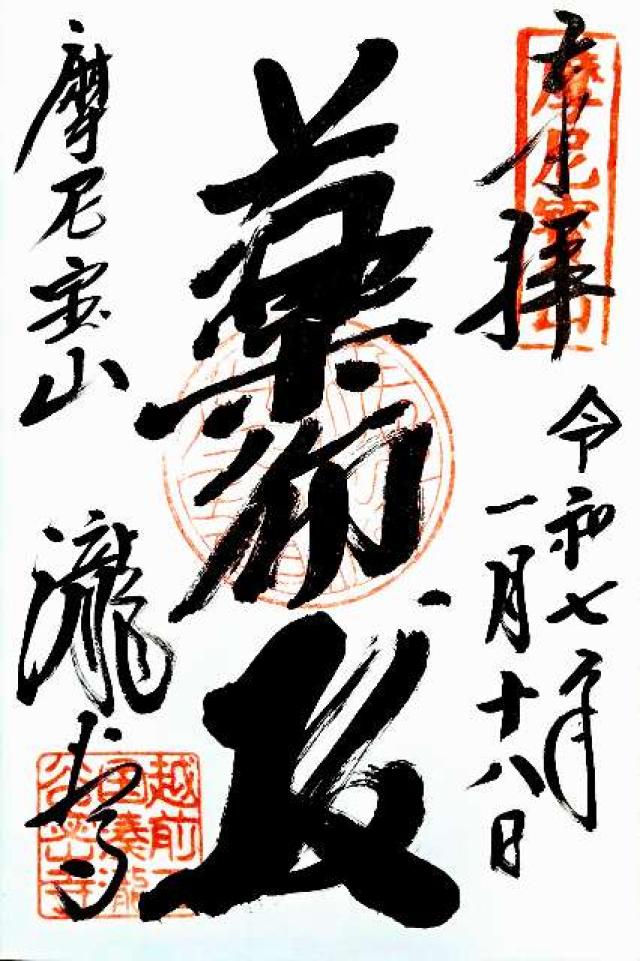 奉拝
摩尼宝山
令和七年
一月十八日
薬師
摩尼宝山
瀧谷寺
越前三
国湊瀧
谷密寺